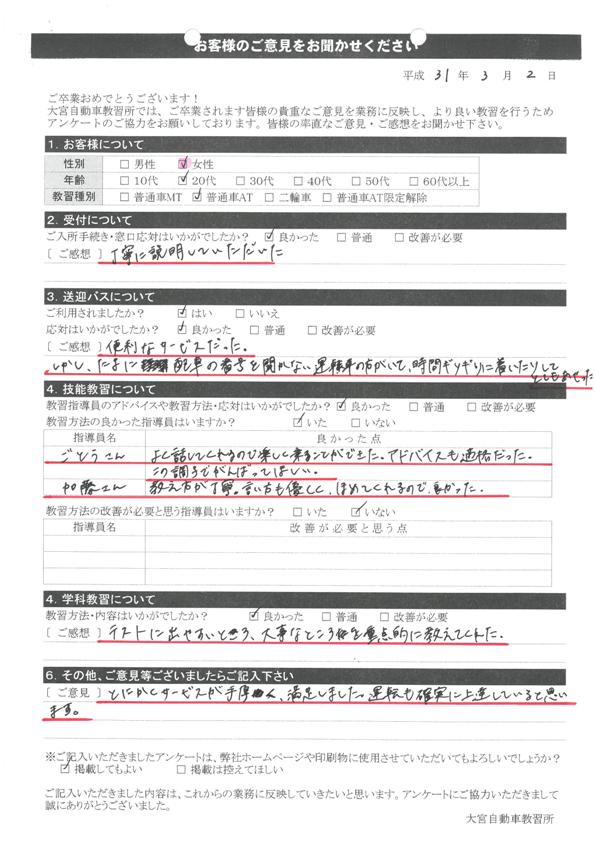 お客様のご意見をお聞かせください
平成 31 年 3 月 2 日
ご卒業おめでとうございます！
大宮自動車教習所では、ご卒業されます皆様の貴重なご意見を業務に反映し、より良い教習を行うため
アンケートのご協力をお願いしております。皆様の率直なご意見・ご感想をお聞かせ下さい。
1. お客様について
性別 □ 男性 ☑ 女性
年齢 □ 10代 ☑ 20代 □ 30代 □ 40代 □ 50代 □ 60代以上
教習種別 □ 普通車MT ☑ 普通車AT □ 二輪車 □ 普通車AT限定解除
2. 受付について
ご入所手続き・窓口応対はいかがでしたか？ ☑ 良かった □ 普通 □ 改善が必要
［ ご感想 ］丁寧に説明していただいた
3. 送迎バスについて
ご利用されましたか？ ☑ はい □ いいえ
応対はいかがでしたか？ ☑ 良かった □ 普通 □ 改善が必要
［ ご感想 ］便利なサービスだった。
しかし、たまに配車の番号を聞かない運転手の方がいて、時間ギリギリに着いたりして
とてもあせった
4. 技能教習について
教習指導員のアドバイスや教習方法・応対はいかがでしたか？ ☑ 良かった □ 普通 □ 改善が必要
教習方法の良かった指導員はいますか？ ☑ いた □ いない
指導員名 良かった点
ごとうさん よく話してくれるので楽しく乗ることができた。アドバイスも適格だった。
この調子でがんばってほしい。
加藤さん 教え方が丁寧。言い方も優しく、ほめてくれるので、良かった。
教習方法の改善が必要と思う指導員はいますか？ □ いた ☑ いない
指導員名 改善が必要と思う点
4. 学科教習について
教習方法・内容はいかがでしたか？ ☑ 良かった □ 普通 □ 改善が必要
［ ご感想 ］テストに出やすいところ、大事なところを重点的に教えてくれた。
6. その他、ご意見等ございましたらご記入下さい
［ ご意見 ］とにかくサービスが手厚く、満足しました。運転も確実に上達していると思い
ます。
※ご記入いただきましたアンケートは、弊社ホームページや印刷物に使用させていただいてもよろしいでしょうか？
☑ 掲載してもよい □ 掲載は控えてほしい
ご記入いただきました内容は、これからの業務に反映していきたいと思います。アンケートにご協力いただきまして
誠にありがとうございました。
大宮自動車教習所